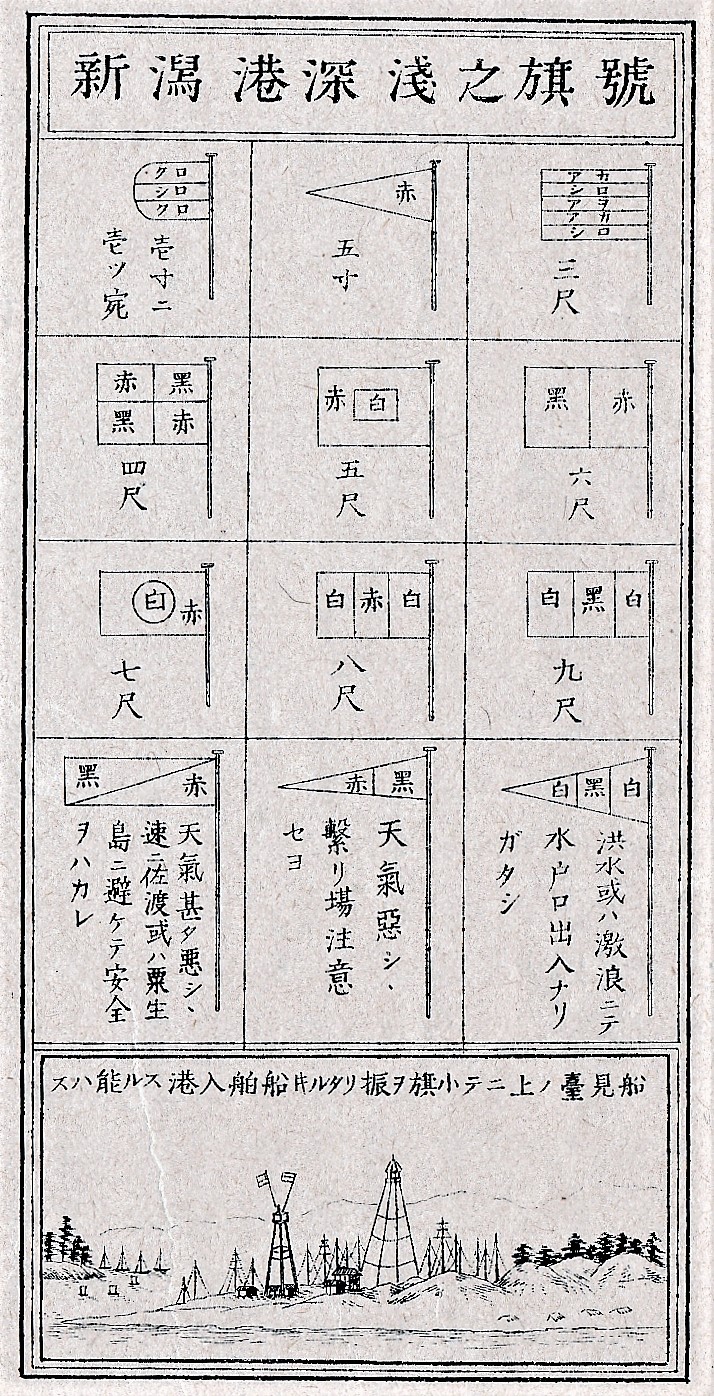 新潟港深淺之旗號
アカ
シロ
アヲ
アカ
シロ
三尺
赤
五寸
クロ
シロ
クロ
壱寸ニ
壱ツ宛
黑 赤
六尺
赤 白
五尺
赤 黑
黑 赤
四尺
白 黑 白
九尺
白 赤 白
八尺
白 赤
七尺
白 黑 白
洪水或ハ激浪ニテ
水戸口出入ナリ
ガタシ
赤 黑
天氣惡シ、
繋リ場注意
セヨ
黑 赤
天氣甚タ悪シ、
速ニ佐渡或ハ粟生
島ニ避ケテ安全
ヲハカレ
船見臺ノ上ニテ小旗ヲ振リタルトキ船舶入港スル能ハス